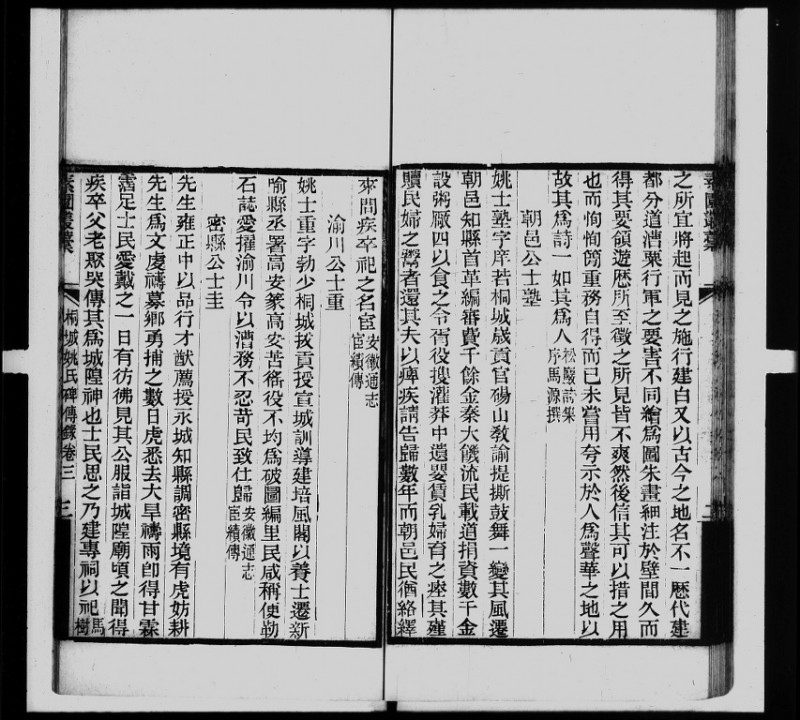 之所宜將起而見之施行建白又以古今之地名不一歷代建
都分道漕粟行軍之要害不同繪爲圖朱畫細注於壁間久而
得其要領遊歷所至徵之所見皆不爽然後信其可以措之用
也而恂恂篤重務自得而已未嘗用夸示於人爲聲華之地以
故其爲詩一如其爲人松巖詩集序馬源撰
朝邑公士塾
姚士塾字庠若桐城歲貢官碭山教諭提撕鼓舞一變其風遷
朝邑知縣首革編審費千餘金秦大饑流民載道捐資數千金
設粥廠四以食之令胥役搜灌莽中遺嬰賃乳婦育之瘞其殣
贖民婦之鬻者還其夫以痺疾請告歸數年而朝邑民猶絡繹
來問疾卒祀之名宦安徽通志宦績傳
渝川公士重
姚士重字勃少桐城拔貢授宣城訓導建培風閣以養士遷新
喻縣丞署高安篆高安苦徭役不均爲破圖編里民咸稱便勒
石誌愛擢渝川令以漕務不忍苛民致仕歸安徽通志宦績傳
密縣公士圭
先生雍正中以品行才猷薦授永城知縣調密縣境有虎妨耕
先生爲文虔禱募鄉勇捕之數日虎悉去大旱禱雨卽得甘霖
霑足士民愛戴之一日有彷彿見其公服詣城隍廟頃之聞得
疾卒父老聚哭傳其爲城隍神也士民思之乃建專祠以祀馬樹
桐城姚氏碑傳錄卷三
三